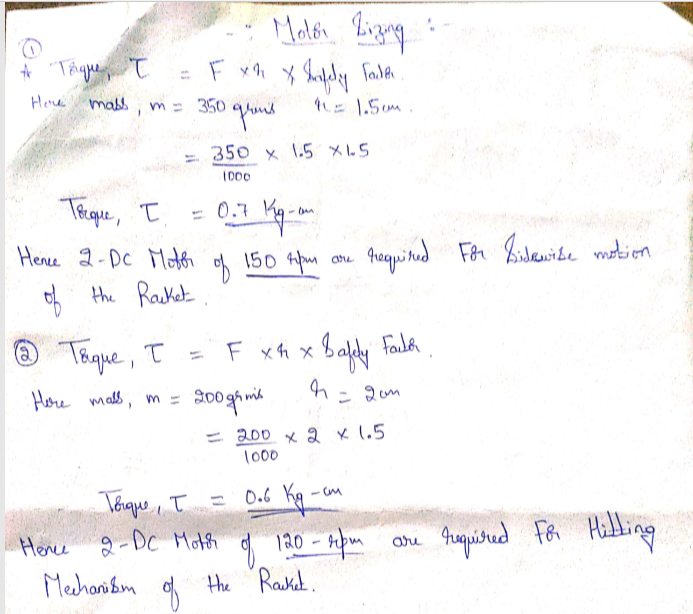 -: Motor Sizing :-
①
* Torque, τ = F × r × Safety Factor.
Here mass, m = 350 grams r = 1.5 cm.
= 350/1000 × 1.5 × 1.5
Torque, τ = 0.7 Kg-cm
Hence 2-DC Motor of 150 rpm are required For Sidewise motion
of the Racket.
② Torque, τ = F × r × Safety Factor.
Here mass, m = 200 grams r = 2 cm
= 200/1000 × 2 × 1.5
Torque, τ = 0.6 Kg-cm
Hence 2-DC Motor of 120-rpm are required For Hitting
Mechanism of the Racket.